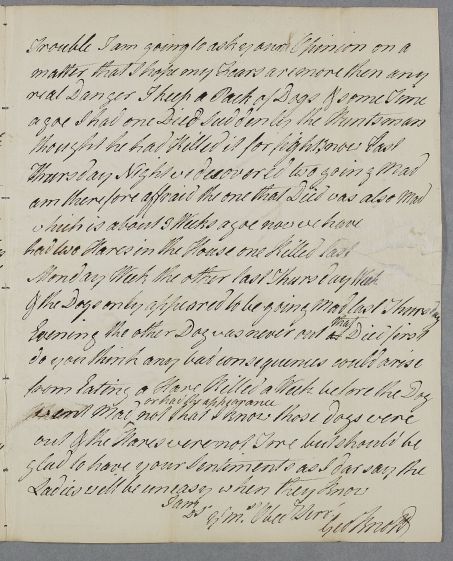 Trouble I am going to ask your Opinion on a
matter that I hope my Fears are more then any
real Danger I keep a Pack of Dogs & some Time
agoe I had one Died Suddenly the Huntsman
thought he had Killed it for fighting now Last
Thursday Night we discovered two going Mad
am therefore affraid the one that Died was also Mad
which is about 3 Weeks agoe now we have
had two Hares in the House one Killed last
Monday Week the other last Thursday Week
& the Dogs only appeared to be going Mad last Thursday
Evening the other Dog was never out that Died first
do you think any bad consequences could arise
from Eating a Hare Killed a Week before the Dog
went Mad or had its appearance not that I know those dogs were
out & the Hares were not Tore but should be
glad to have your Sentiments as I dar say the
Ladies will be uneasy when they Know
I am
Dr Sr yr ms Obed Servt
Geo Arnold